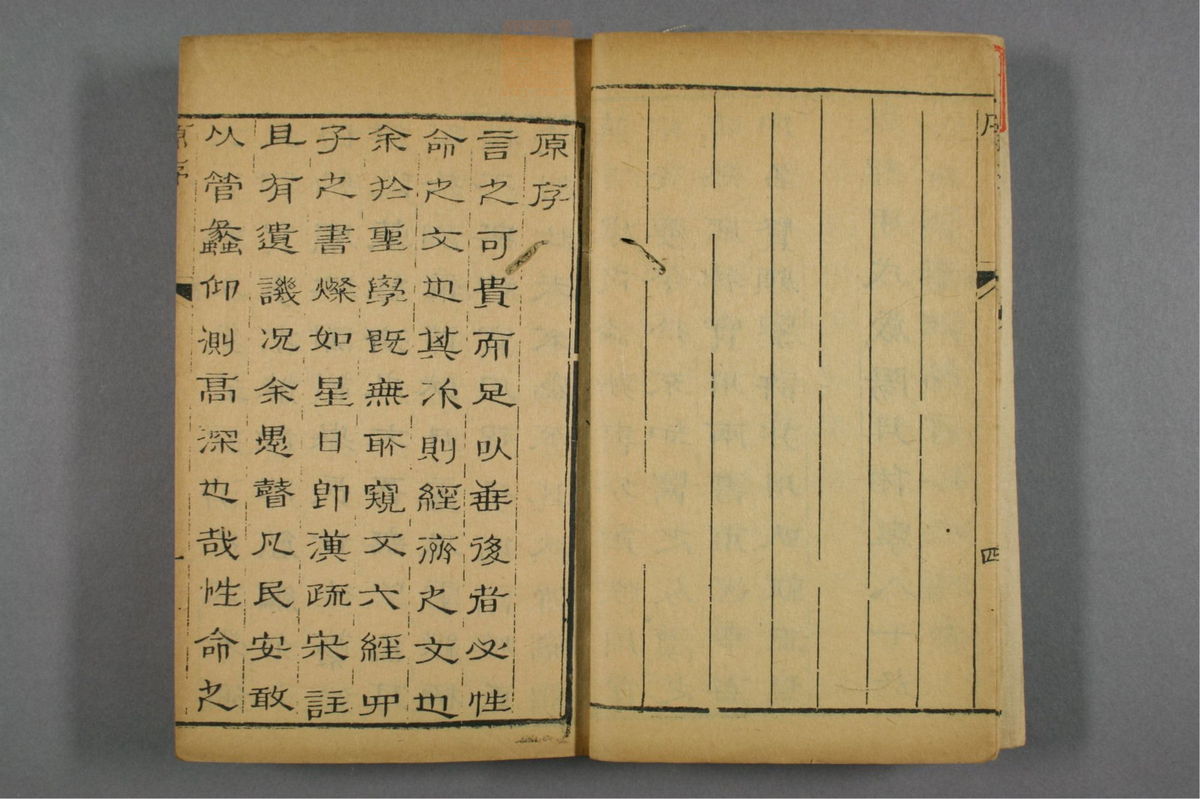 序
四
原序
言之可貴而足以垂後者必性
命之文也其次則經濟之文也
余扵聖學既無所窺文六經四
子之書燦如星日即漢疏宋註
且有遺譏况余愚瞽凡民安敢
以管蠡仰測高深也哉性命之
原序
一